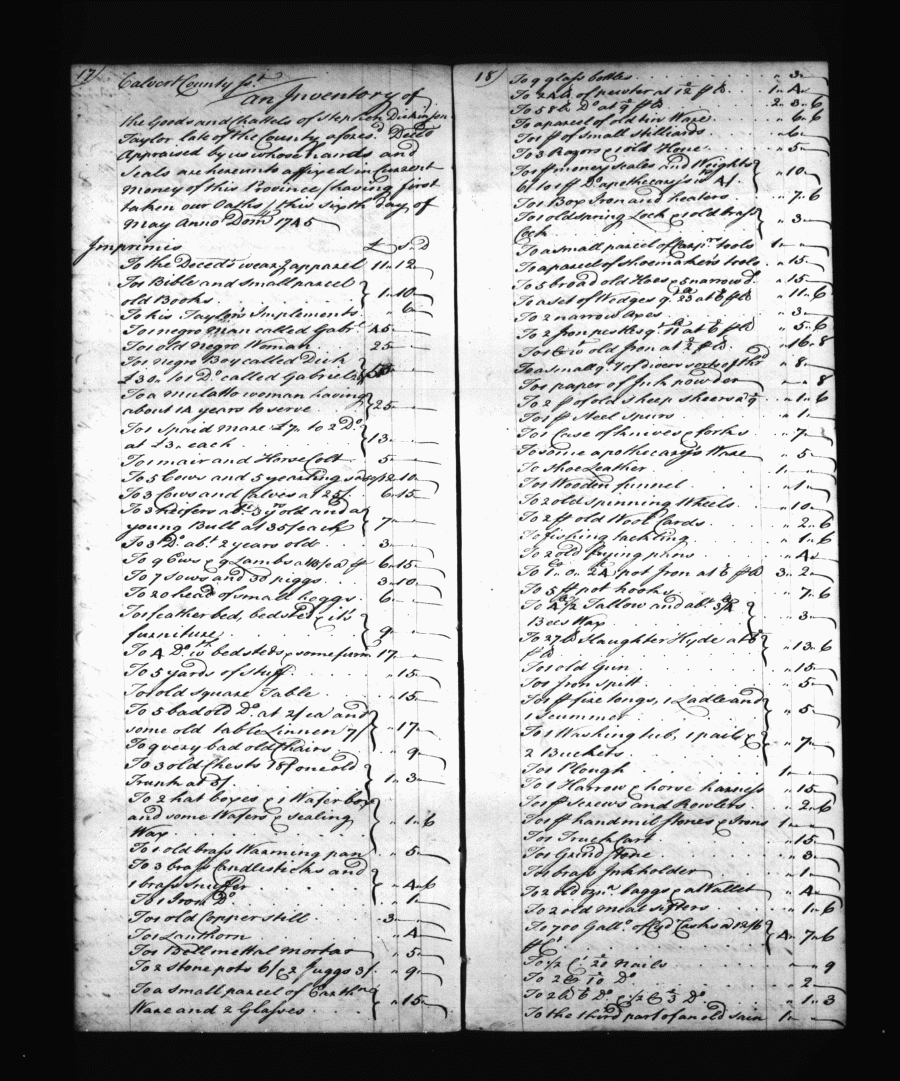 17/
Calvert County ss.t
an Inventory of
the Goods and chattels of Stephen Dickinson
Taylor late of the County afores.d Deced
Appraised by us whose hands and
Seals are hereunto affixed in Current
money of this Province /having first
taken our Oaths/ this sixth day of
May Anno Dom 1745
Imprimis £ S D
To the Deced's wear.g apparel 11 " 12 "
To 1 Bible and small parcel
old Books 1 " 10 "
To his Taylors Implements " 6 "
To 1 negro man called Gab.l 45 " "
To 1 old Negro Woman 25 " "
To 1 Negro Boy called Dick
£30. To 1 D.o called Gabriel
To a Mulatto woman having
about 14 years to serve 25 " "
To 1 Spaid mare £7, to 2 D.o
at £3, each 13 " "
To 1 mair and Horse Colt 5 " "
To 5 Cows and 5 yearlings 12 " 10 "
To 3 Cows and Calves at 45/ 6 " 15 "
To 3 heifers ab.t 3 y.r old and a
young Bull at 35/ each 7 " "
To 3 D.o ab.t 2 years old 3 " "
To 9 Ews & 9 Lambs 6 " 15 "
To 7 sows and 30 piggs 3 " 10 "
To 20 head of small hoggs 6 " "
To 1 featherbed, bedsted & it's
furniture 9 " "
To 4 D.o bedsteds & some furn. 17 " "
To 5 yards of Stuff " 15 "
To 1 old square Table " 15 "
To 5 bad old D.o at 2/ ea and
some old table Linnen 7/ " 17 "
To 9 very bad old Chairs " 9 "
To 3 old Chests 18/ one old
Trunk at 5/ 1 " 3 "
To 2 hat boxes & 1 Wafer box
and some Wafers & sealing
Wax " 1 " 6
To 1 old brass Warming pan " 5 "
To 3 brass Candlesticks and
1 brass snuffer " 4 " 6
To 1 Iron D.o " 1 "
To 1 old Copper still 3 " "
To 1 Lanthorn " 4 "
To 1 Bell mettal mortar " 5 "
To 2 Stone pots 6/ & 2 Juggs 3/ " 9 "
To a small parcel of Earth
Ware and 2 Glasses " 15 "
18/
To 9 glass bottles " 3 "
To 24 lb of pewter at 12 p lb 1 " 4 "
To 58 lb D.o at 9 p lb 2 " 3 " 6
To a parcel of old tin Ware " 6 " 6
To 1 pr of small Stilliards " 6 "
To 3 Razors & 1 old Hone " 5 "
To 1 pr money Scales and Weights
6/ to 1 pr D.o apothecary's 4/ " 10 "
To 1 Box Iron and heaters " 7 " 6
To 1 old spring Lock & 1 old brass
Cock " 3 "
To a small parcel of Carp.rs tools 1 " "
To a parcel of Shoemakers tools " 15 "
To 5 broad old Hoes & 5 narrow D.o " 15 "
To a set of Wedges q.t 23 at 6 p lb " 11 " 6
To 2 narrow Axes " 3 "
To 2 Iron pestles q.t 11 at 6 p lb " 5 " 6
To 1 C w.t old Iron at 2 p lb " 16 " 8
To a small q.t of divers sorts of Thr.d " 8 "
To 1 paper of Ink powder " " 8
To 2 pr of old sheep sheers 2 9 " 1 " 6
To 1 pr Steel Spurs " 1 "
To 1 Case of knives & forks " 7 "
To some apothecary's Ware " 5 "
To Shoe Leather 1 " "
To 1 Wooden funnel " 1 "
To 2 old spinning Wheels " 10 "
To 2 pr old Wool Cards " 2 " 6
To fishing tackling " 1 " 6
To 2 old frying pans " 4 "
To 1 " 0 " 24 pot Iron at 6 p lb 3 " 2 "
To 5 pr pot hooks " 7 " 6
To 4 1/2 Tallow and ab.t 3/4
Bees Wax " 3 "
To 27 lb Slaughter Hyde at 6
p lb " 13 " 6
To 1 old Gun " 15 "
To 1 Iron Spitt " 5 "
To 1 pr fire tongs, 1 Ladle and
1 Scummer " 5 "
To 1 Washing tub, 1 pail &
2 Buckets " 7 "
To 1 Plough 1 " "
To 1 Harrow & horse harness " 15 "
To 1 pr Screws and Rowlers " 2 " 6
To 1 pr hand mil stones & Irons 1 " "
To 1 Truck Cart " 15 "
To 1 Grind Stone " 3 "
To 1 brass Inkholder " 1 "
To 2 old baggs & a Wallet " 4 "
To 2 old meal sifters " 1 " 6
To 700 Gall.s of Cyd.r Casks a 12/6
p C.t 4 " 7 " 6
To 1/2 C.t 20 nails " " 9
To 2 C 10 D.o " 2 "
To 2 C 6 D.o & 1/2 C 3 D.o " 1 " 3
To the third part of an old sain 1 " "